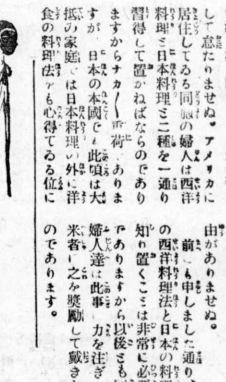 して怠たりませぬ。アメリカに
居住してゐる同胞の婦人は西洋
料理と日本料理と二種を一通り
習得して置かねばならのであり
ますからナカ〳〵重荷でありま
すが 日本の本國でも此頃は大
抵の家庭では日本料理の外に洋
食の料理法をも心得てゐる位に
由がありませぬ。
前にも申しました通り
の西洋料理法と日本の料理
知り置くことは非常に必要
でありますから以後とも
婦人達は此事に力を注ぎ
米者に之を奬勵して戴き
のであります。